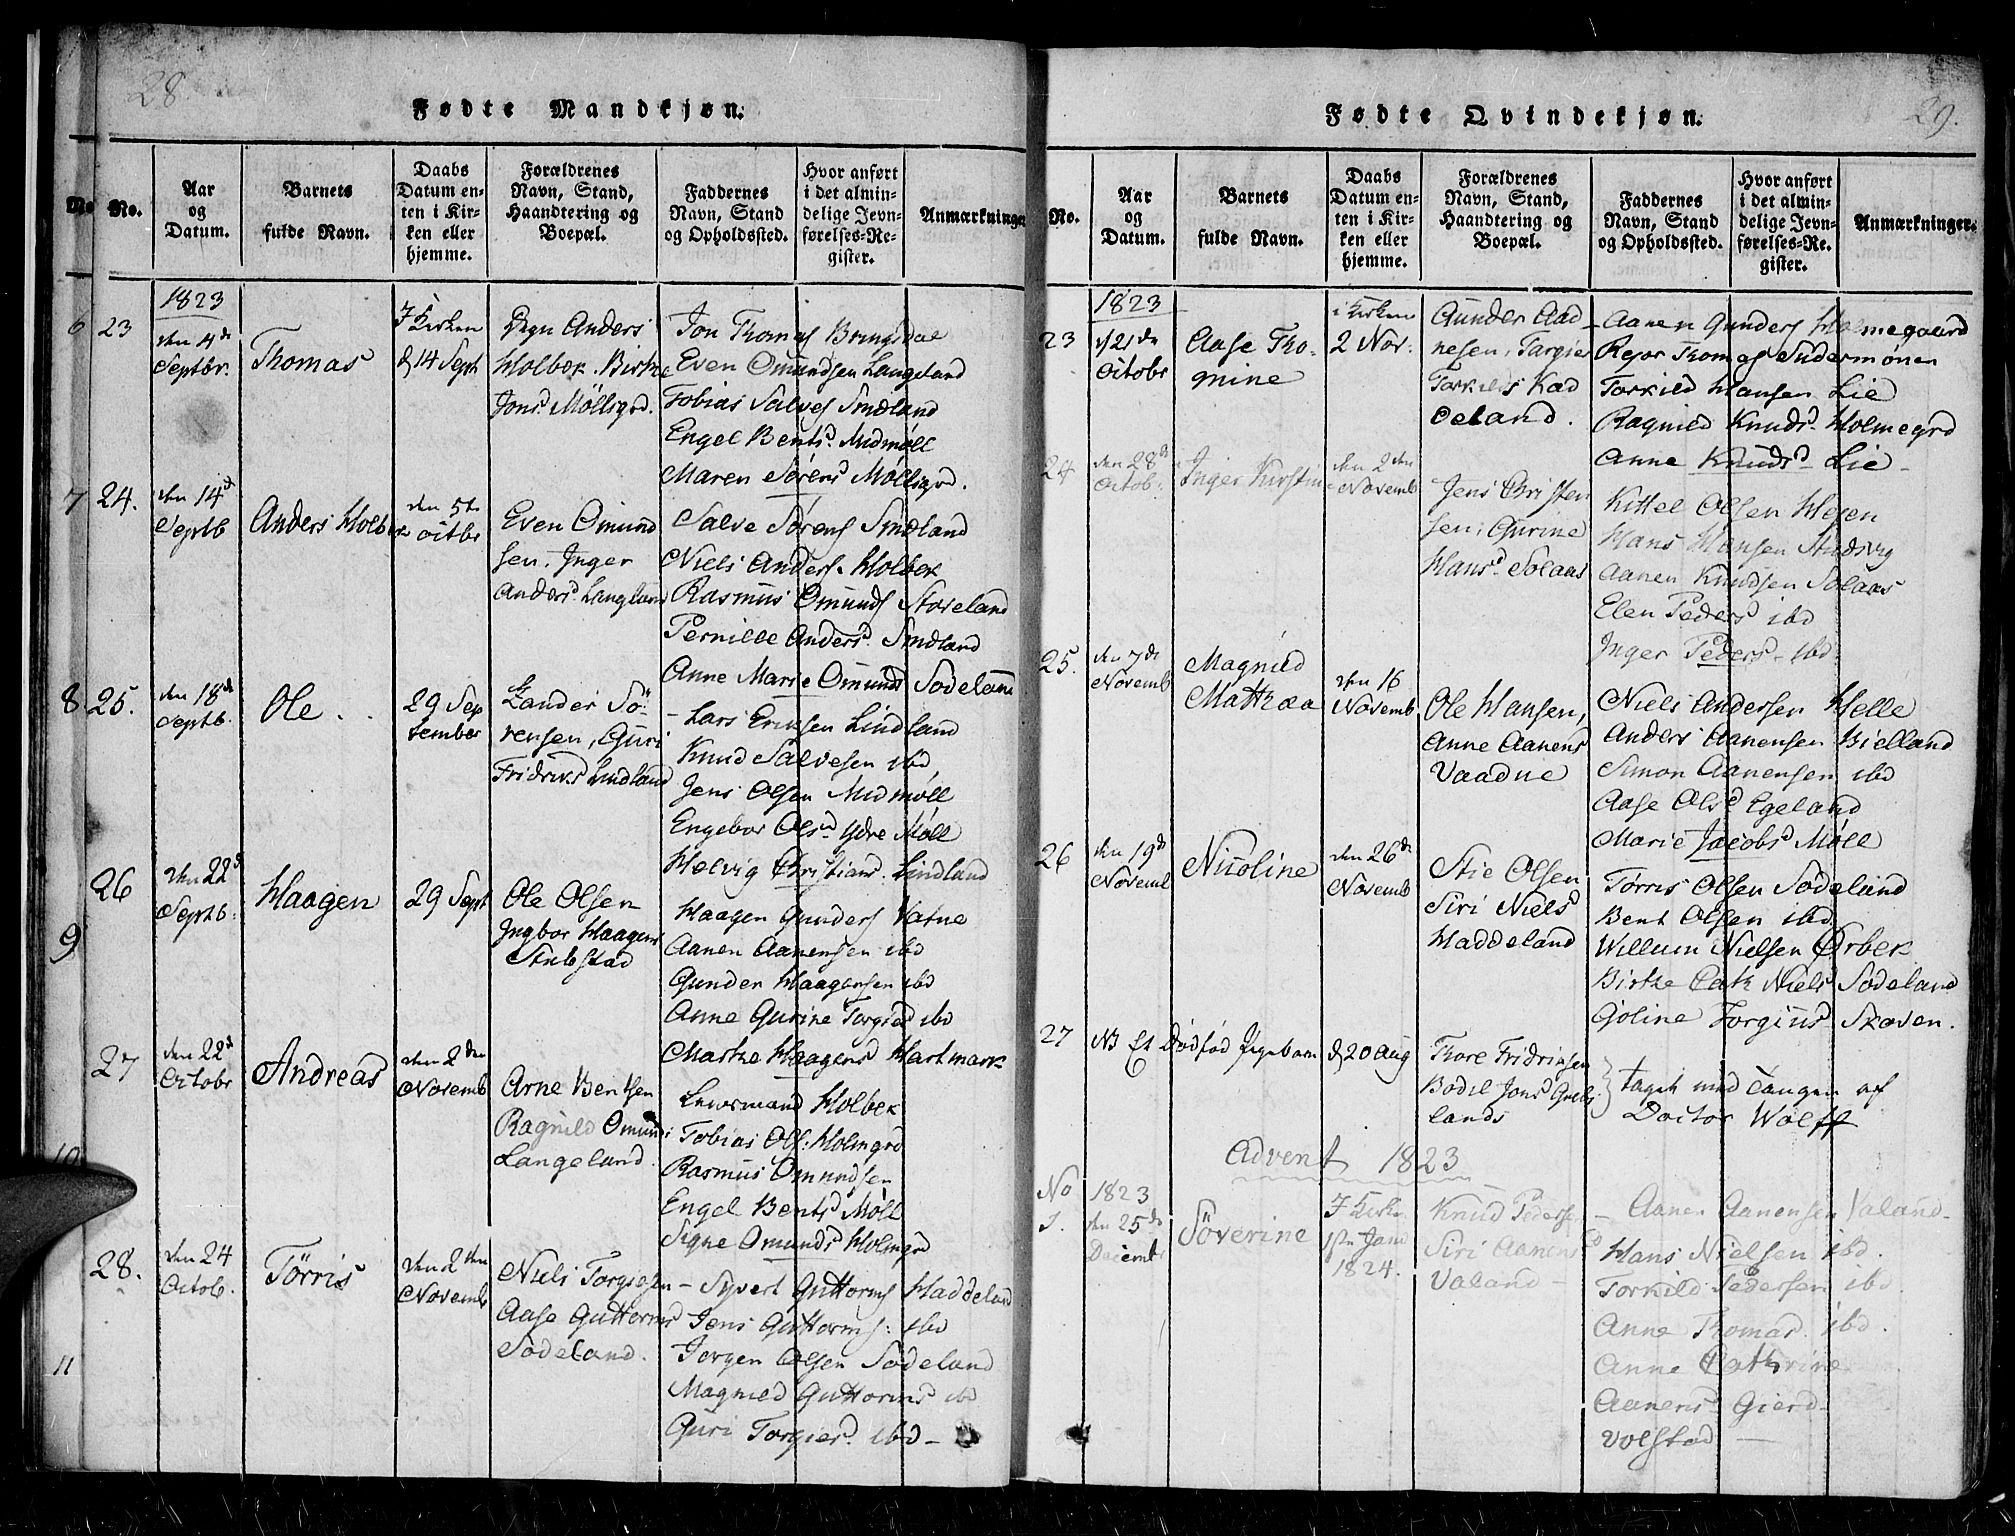 28
Fødte Mandkjøn.
No.
Aar
og
Datum.
Barnets
fulde Navn.
Daabs
Datum en-
ten i Kir-
ken eller
hjemme.
Forældrenes
Navn, Stand,
Haandtering og
Boepæl.
Faddernes
Navn, Stand
og Opholdssted.
Hvor anført
i det almin-
delige Jevn-
førelses-Re-
gister.
Anmærkninger
1823
23
den 4de
Septbr.
Thomas
I Kirken
d 14 Sept
Anders
Holbek. Birthe
Jonsd Möllsgrd.
Jon Thomas Bringsdal
Even Omundsen Langeland
Tobias Salves Smedland
Engel Bentsd. Midmøll
Maren Sørensd Möllsgrd.
24.
den 14d
Septb
Anders Holbek
den 5te
Octbr
Even Omund
sen. Inger
Andersd. Langeland
Salve Sørens Smedland
Niels Anders. Holbek
Rasmus Omunds Stoveland
Pernille Andersd. Smedland
Anne Marie Omunds Sodeland
25.
den 18de
Septb.
Ole
29 Sep
tember
Gander Sö-
rensen, Guri
Fridriks Lindland
Lars Eriksen Lindland
Knud Salvesen ibd
Jens Olsen Midmøll
Engebor Olsd. Ydre Møll
Helvig Christians. Lindland
26
den 22d
Septb.
Haagen
29 Sept
Ole Olsen
Ingbor Haagens
Stubstad
Haagen Gunders Vatne
Aanen Aanensen ibd
Gunder Haagensen ibd
Anne Gurine Torgies ibd
Marthe Haagens Hartmark
27
den 22d
Octobr
Andreas
den 2den
Novemb
Arne Bentsen
Ragnild Omunds
Langeland
Lensmand Holbek
Tobias Ols. Holmgrd
Rasmus Omundsen
Engel Bentsd Møll
Signe Omundsd Holmgrd
28.
den 24
Octob.
Tørris
den 2den
Novemb
Niels Torgiesen
Aase Guttorms
Sodeland.
Syvert Guttorms Haddeland
Jens Guttorms. ibd
Jorgen Olsen Sodeland
Magnild Guttorms ibd
Guri Torgiesd. ibd
29.
Fødte Qvindekjøn.
No.
Aar
og
Datum.
Barnets
fulde Navn.
Daabs
Datum en-
ten i Kir-
ken eller
hjemme.
Forældrenes
Navn, Stand,
Haandtering og
Boepæl.
Faddernes
Navn, Stand
og Opholdssted.
Hvor anført
i det almin-
delige Jevn-
førelses-Re-
gister.
Anmærkninger.
1823
23
d 21de
Octobr
Aase Tho-
mine
i Kirken
2 Nov:
Gunder Aad
nesen, Targier
Torkilds Kad
deland.
Aanen Gunders Holmegaard
Rejor Thomas Sudermønen
Torkild Hansen Lie
Ragnild Knuds. Holmegrd
Anne Knudsd Lie
24
den 28d
Octob.
Inger Kirstin
den 2den
Novemb
Jens Christen
sen, Gurine
Hansd Solaas
Kittel Olsen Hesen
Hans Hansen Studsvig
Aanen Knudsen Solaas
Elen Pedersd ibd
Inger Peders ibd
25.
den 7de
Novemb
Magnild
Mathea
den 16
Novemb
Ole Hansen,
Anne Aanens
Vaadne
Niels Andersen Helle
Anders Aanensen Bielland
Simon Aanensen ibd
Aase Olsd Egeland
Marie Jacobsd Møll
26
den 19d
Novemb
Nicoline
den 26de
Novemb
Stie Olsen
Siri Nielsd
Haddeland
Tørris Olsen Sodeland
Bent Olsen ibd
Willum Nielsen Ørbek
Birthe Cath Niels Sodeland
Goline Torgius Skoven.
27
NB Et Dødfød Pigebarn
d 20 Aug
Thore Fridrigsen
Bodil Jonsd
lands
taget med Tangen af
Doctor Wolff
Advent 1823
No
1.
1823
den 25de
Decemb
Söverine
I Kirke
1te Janu
1824.
Knud Peders
Siri Aanensd
Valand
Aanen Aanensen Valand
Hans Nielsen ibd.
Torkild Pedersen ibd
Anne Thomas. ibd.
Anne Cathrine
Aanens Gierd
Volstad